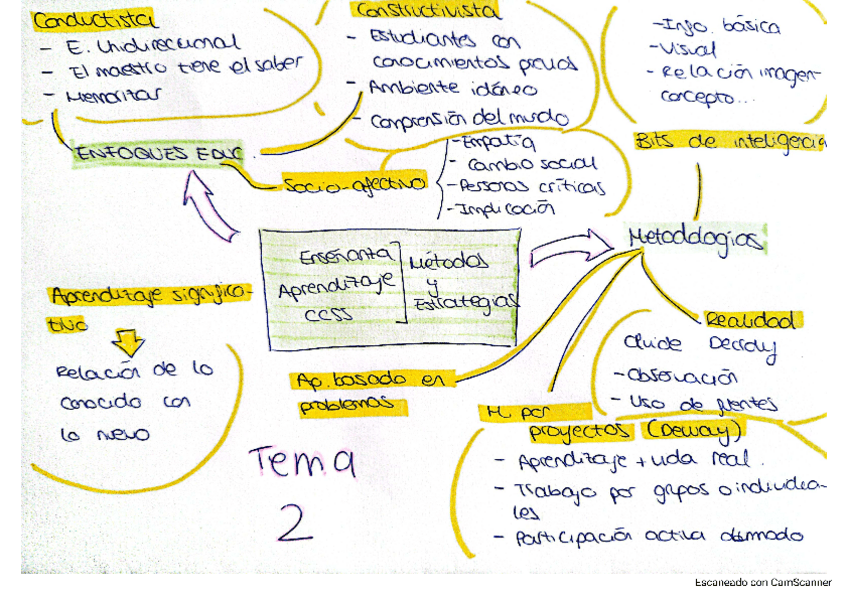 Conductista
- E. Unidireccional
- El maestro tiene el saber
- Memorizar
Constructivista
- Estudiantes con
conocimientos previos
- Ambiente idóneo
- Comprensión del mundo
- Info. básica
- Visual
- Relación imagen-
concepto...
ENFOQUES EDUC.
Socio-afectivo
- Empatía
- Cambio social
- Personas críticas
- Implicación
Bits de inteligencia
Metodologías
Enseñanza
Aprendizaje
CCSS
Métodos
y
Estrategias
Aprendizaje significa-
tivo
Relación de lo
conocido con
lo nuevo
Ap. basado en
problemas
Realidad
Decroly
- Observación
- Uso de fuentes
M. por
proyectos (Deway)
- Aprendizaje + vida real.
- Trabajo por grupos o individua-
les
- Participación activa
Tema
2
Escaneado con CamScanner